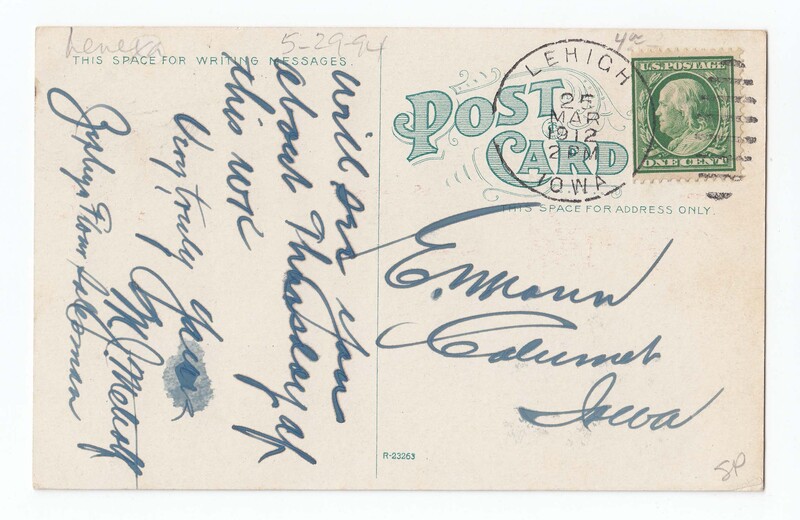 Lenexa
5-29-94
4⁰⁰
THIS SPACE FOR WRITING MESSAGES.
will see you
about Thursday of
this wk
Very truly yours
M.J.
Zephyr Flour Salesman
POST
CARD
LEHIGH
25
MAR
1912
2 PM
IOWA
U.S. POSTAGE
ONE CENT
THIS SPACE FOR ADDRESS ONLY.
E. Mann
Calumet
Iowa
R-23263
SP